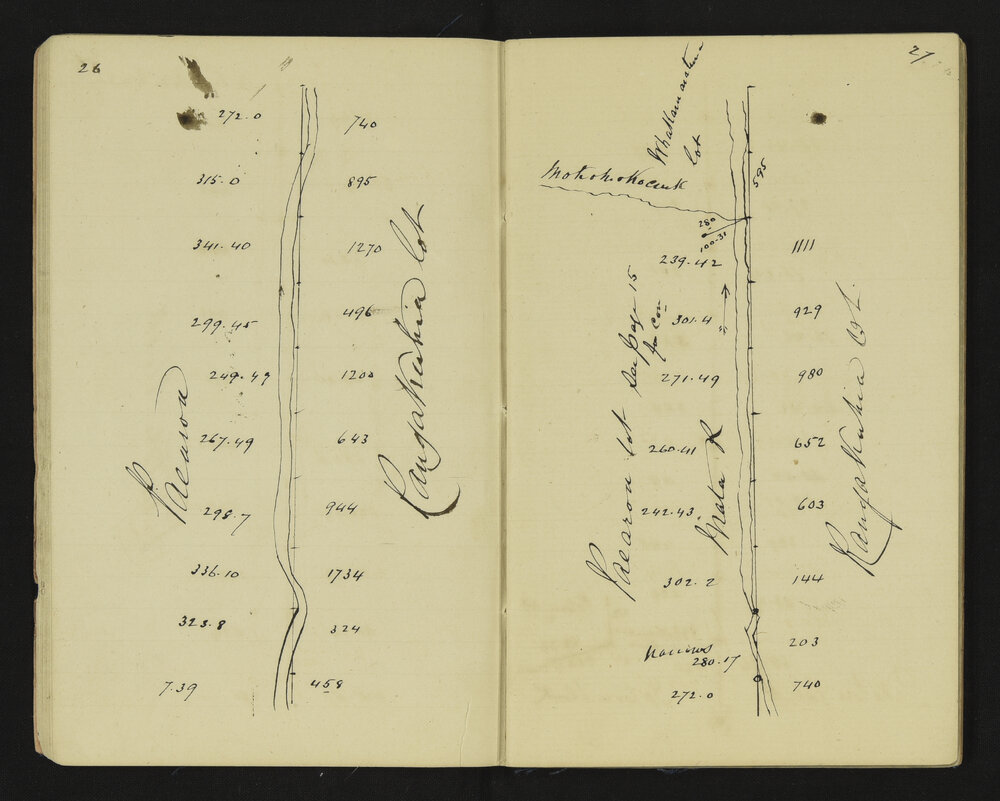 26
272.0 740
315.0 895
341.40 1270
299.45 496
249.49 1200
267.49 643
298.7 944
336.10 1734
323.8 324
7.39 458
lot
27
lot
595
280
100.31
239.42 1111
301.4 929
271.49 980
260.41 652
242.43 603
302.2 144
203
280.17
272.0 740
See Page 15
for Con
lot
Mata R
Lot